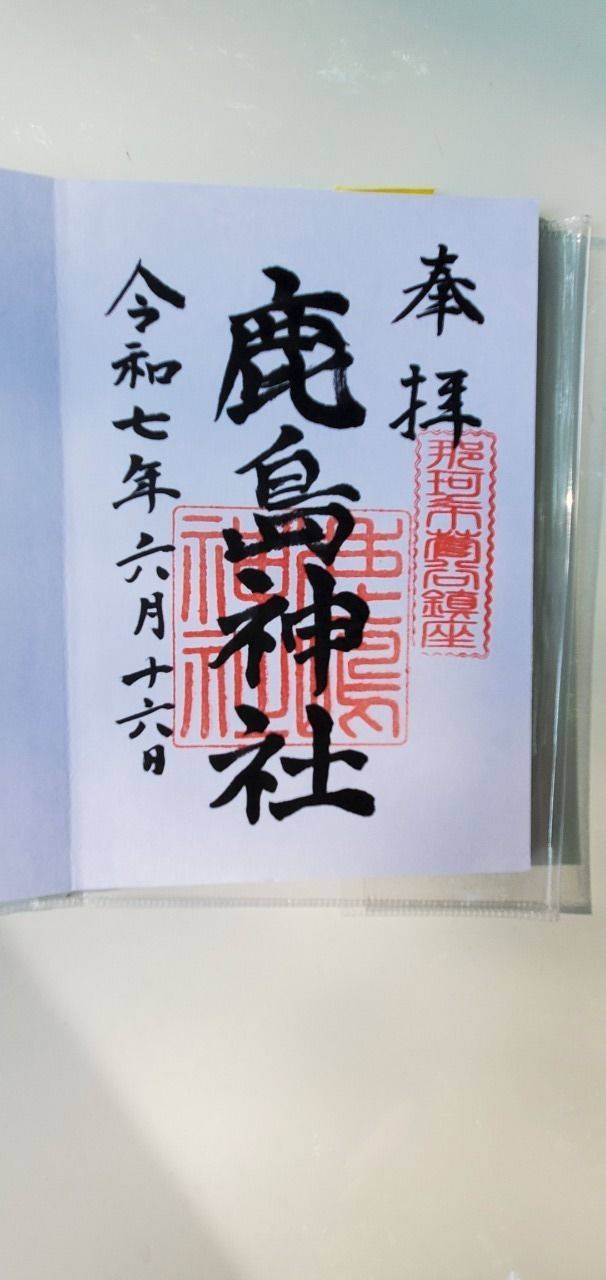 奉拝
那珂市菅谷鎮座
鹿島神社
鹿島神社
令和七年六月十六日